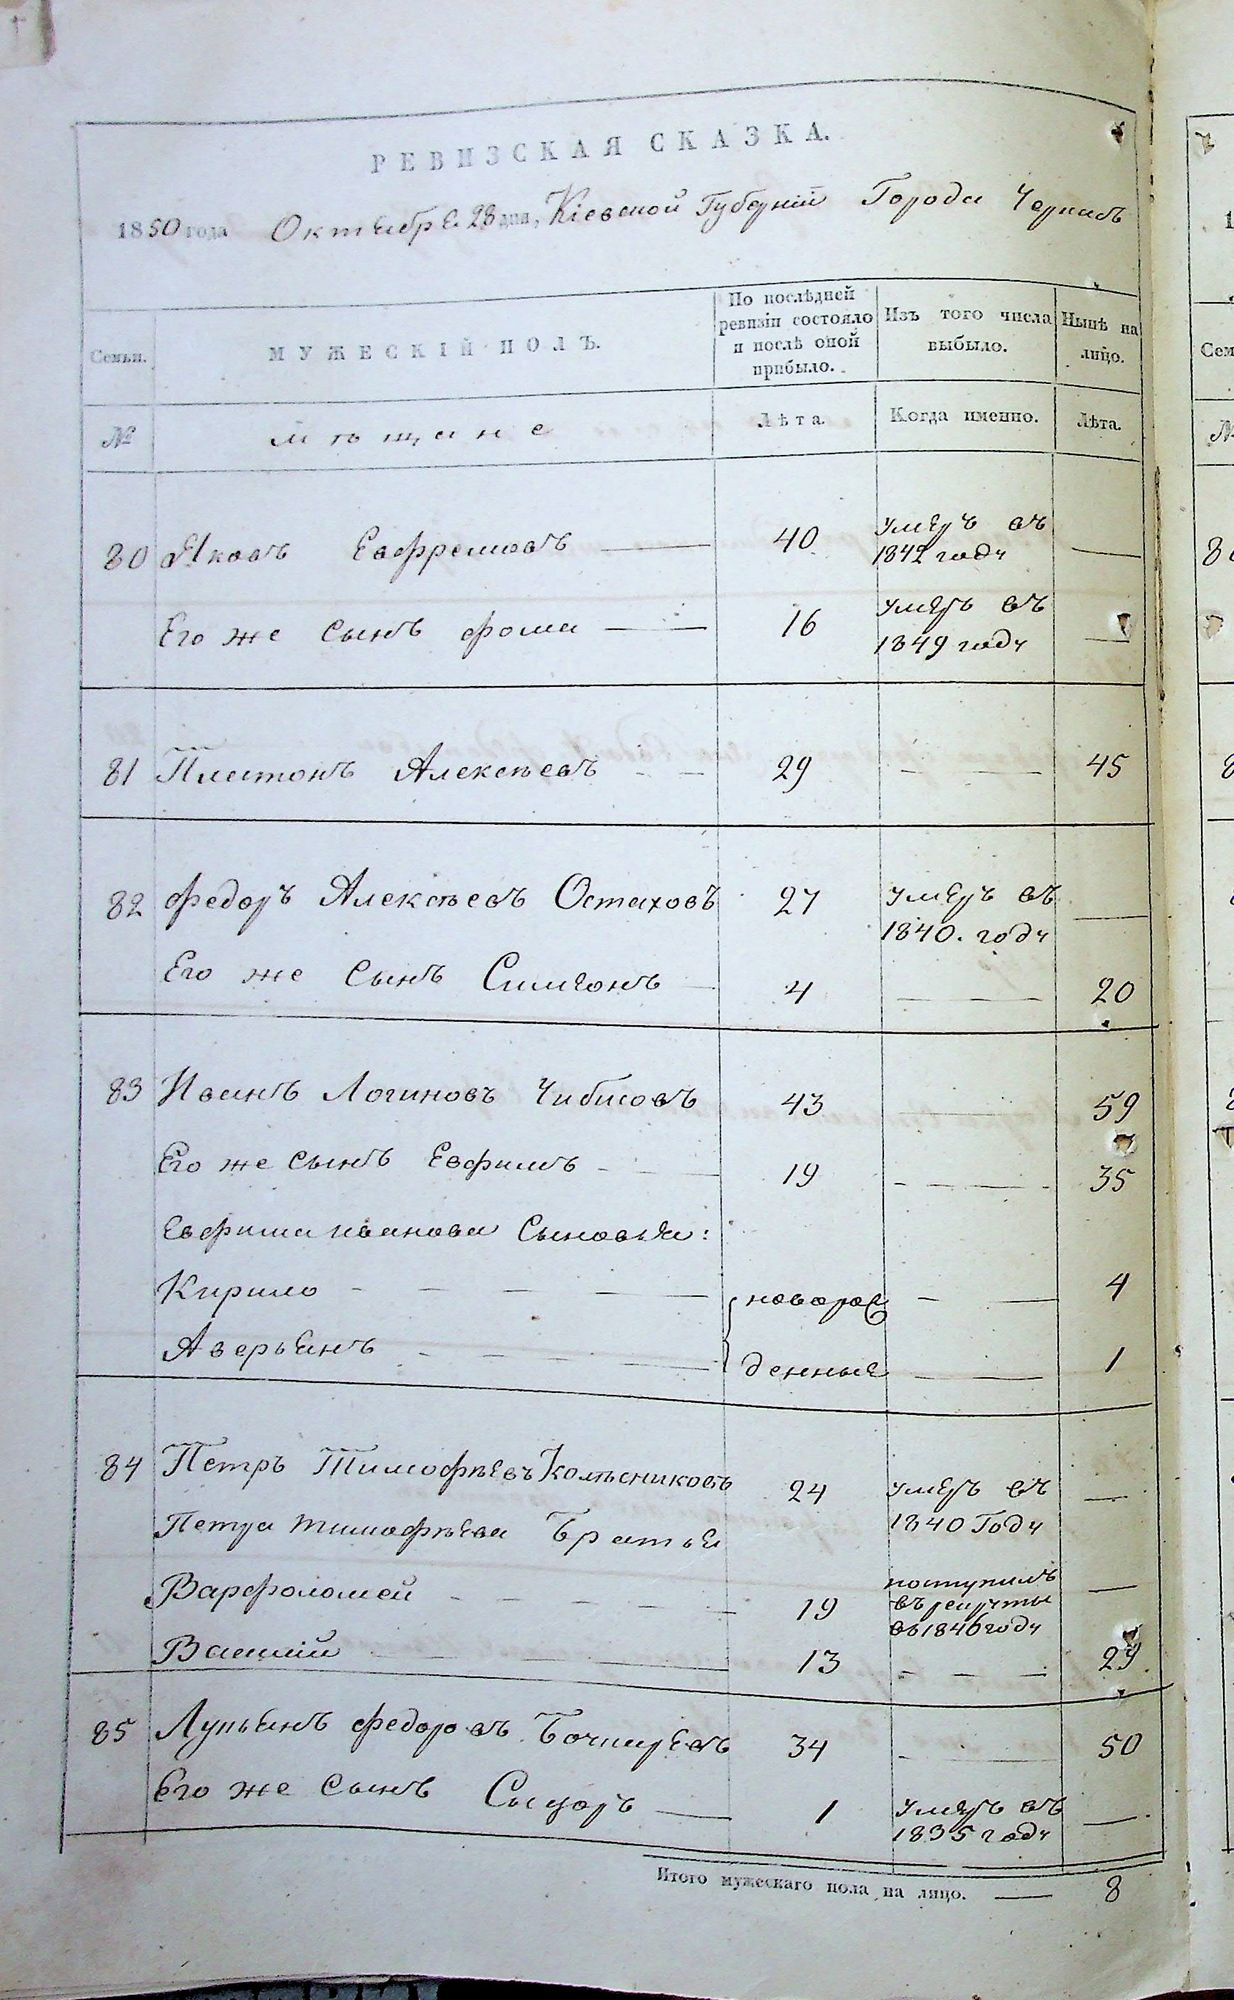 РЕВИЗСКАЯ СКАЗКА.
1850 года Октября 28 дня, Кіевской Губерніи Города Черкасъ
Семьи.
МУЖЕСКІЙ ПОЛЪ.
По послѣдней ревизіи состояло и послѣ оной прибыло.
Изъ того числа выбыло.
Нынѣ на лицо.
№
мѣщане
Лѣта.
Когда именно.
Лѣта.
80 Яковъ Евфремовъ — 40 умеръ въ 1842 году —
Его же сынъ Фома — 16 умеръ въ 1849 году —
81 Платонъ Алексѣевъ — 29 — 45
82 Федоръ Алексѣевъ Остаховъ 27 умеръ въ 1840. году —
Его же сынъ Симеонъ — 4 — 20
83 Иванъ Логиновъ Чибисовъ 43 — 59
Его же сынъ Евфимъ — 19 — 35
Евфима иванова сыновья:
Кирило — новорож — 4
Аверьянъ — денные — 1
84 Петръ Тимофѣевъ Колѣсниковъ 24 умеръ въ 1840 Году —
Петра тимофѣева Братья
Варфоломей — 19 поступилъ въ рекруты въ 1846 году —
Василій — 13 — 29
85 Лукьянъ Федоровъ Бочкаревъ 34 — 50
Его же сынъ Сыдоръ — 1 умеръ въ 1835 году —
Итого мужескаго пола на лицо. — 8